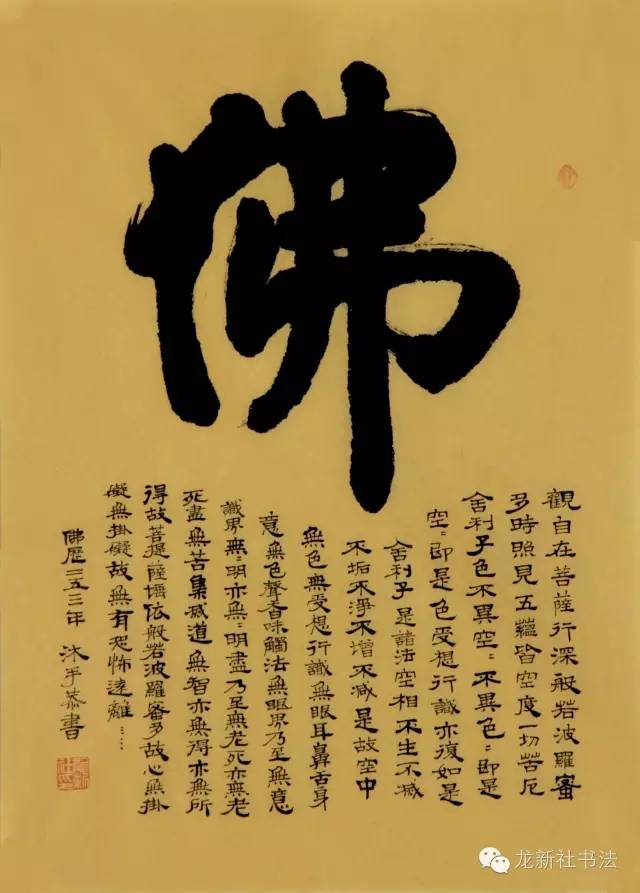 佛
觀自在菩薩行深般若波羅蜜
多時照見五蘊皆空度一切苦厄
舍利子色不異空：不異色：即是
空：即是色受想行識亦復如是
舍利子是諸法空相不生不滅
不垢不淨不增不減是故空中
無色無受想行識無眼耳鼻舌身
意無色聲香味觸法無眼界乃至無意
識界無：明亦無：明盡乃至無老死亦無老
死盡無苦集滅道無智亦無得亦無所
得故菩提薩埵依般若波羅蜜多故心無掛
礙無掛礙故無有恐怖遠離……
佛歷二五三年 沐手恭書
龙新社书法